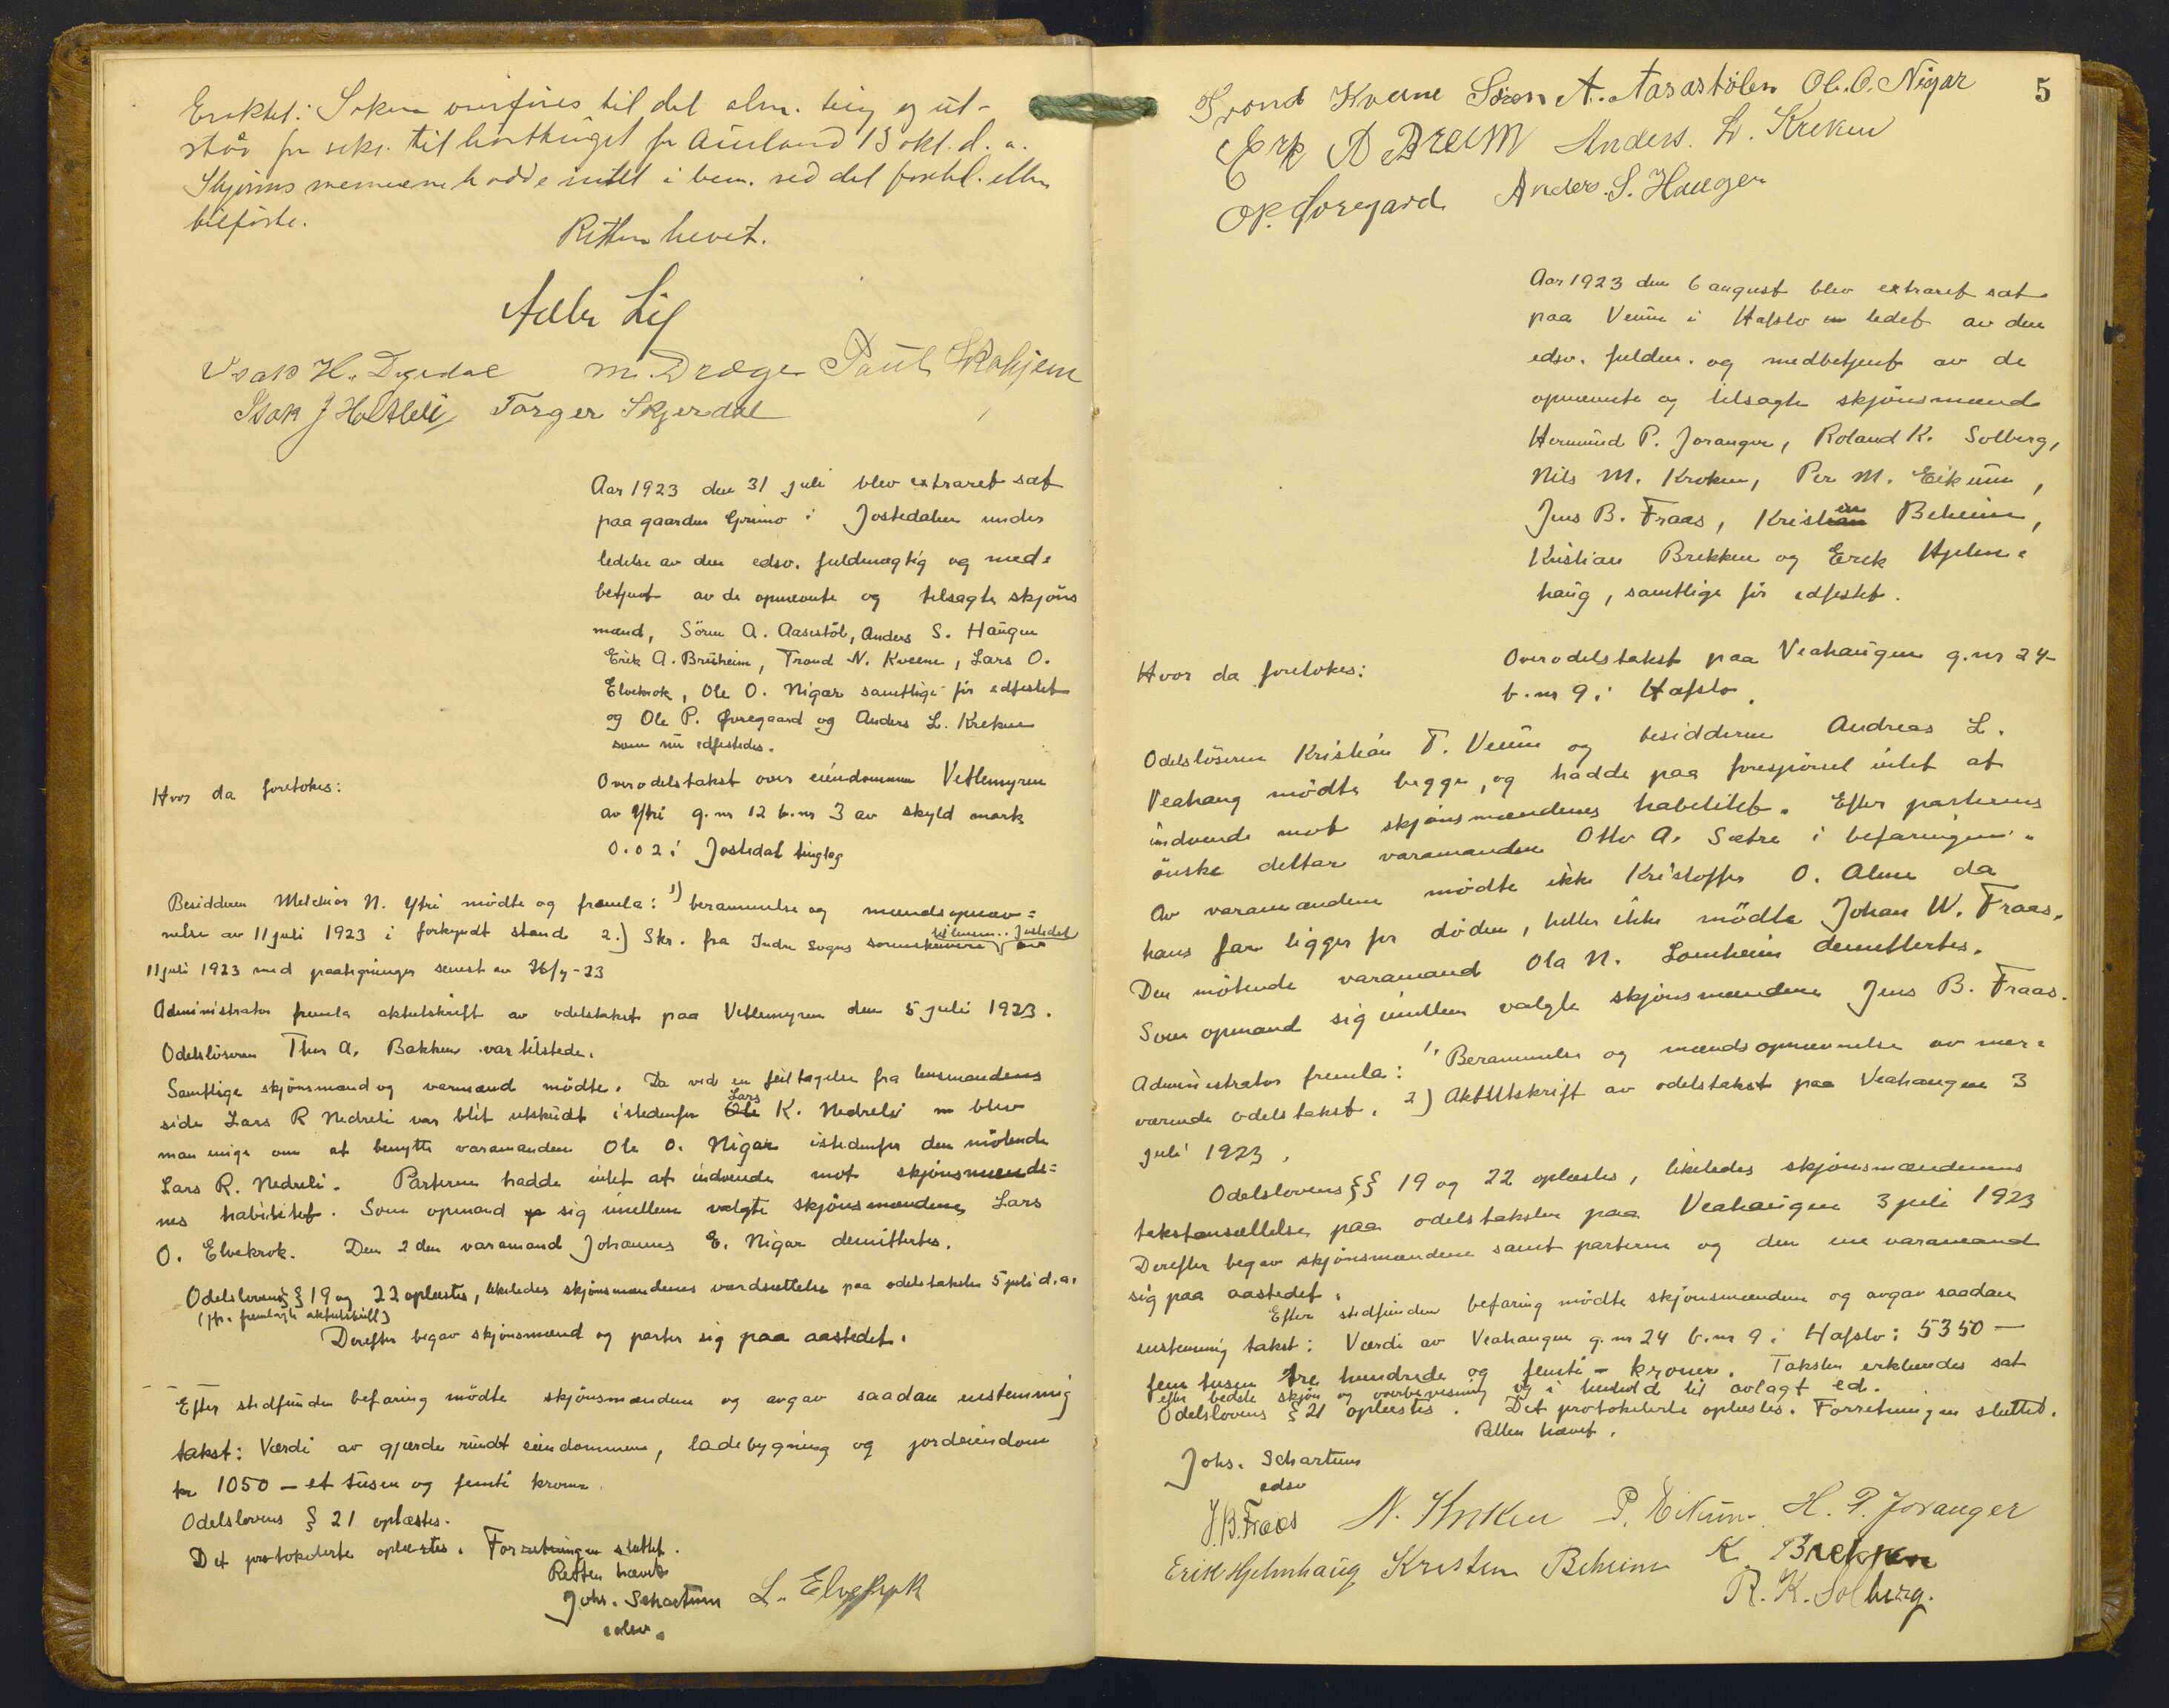 Saken overføres til det alm. ting og ut-
står for seks. til høsttinget for Aurland 13 okt. d. a.
Skjønnsmennene hadde intet i bem. ved det forhl. eller
tilførte.
Retten hevet.
Isak H. Dyrdal M. Dræge Paul Skahjem
Isak J Holtlii Torger Skjerdal
Aar 1923 den 31 juli blev extraret sat
paa gaarden Grimo i Jostedalen under
ledelse av den edsv. fuldmægtig og med-
betjent av de opnævnte og tilsagte skjøns
mænd, Sören A. Aasestöl, Anders S. Haugen
Erik A. Bruheim, Trond N. Kveene, Lars O.
Elvekrok, Ole O. Nigar samtlige før edfestet
og Ole P. Øvregaard og Anders L. Kreken
som nu edfestedes.
Hvor da foretokes:
Overodelstakst over eiendommen Vetlemyren
av Ytri g.nr 12 b.nr 3 av skyld mark
0.02 i Jostedal tinglag
Besidderen Melchior N. Ytri mødte og fremla: 1) berammelse og mændsopnæv=
nelse av 11 juli 1923 i forkyndt stand 2.) Skr. fra Indre Sogns sorenskriveri til lensm. i Jostedal av
11 juli 1923 med paategninger senest av 26/7-23
Administrator fremla aktutskrift av odelstakst paa Vetlemyren den 5 juli 1923.
Odelsløseren Thor A. Bakken var tilstede.
Samtlige skjønsmænd og varmænd mødte. Da ved en feiltagelse fra lensmandens
side Lars R Nedreli var blit utskudt istedenfor Ole Lars K. Nedreli blev
man enige om at benytte varamanden Ole O. Nigar istedenfor den møtende
Lars R. Nedreli. Parterne hadde intet at indvende mot skjønsmænde=
nes habilitet. Som opmand sig imellem valgte skjønsmændene Lars
O. Elvekrok. Den 2den varamand Johannes E. Nigar demittertes.
Odelslovens §§ 19 og 22 oplæstes, likeledes skjønsmændenes værdsættelse paa odelstaksten 5 juli d.a.
(jfr. fremlagte aktutskrift)
Derefter begav skjønsmænd og parter sig paa aastedet.
Efter stedfunden befaring mødte skjønsmændene og avgav saadan enstemmig
takst: Værdi av gjærde rundt eiendommen, ladebygning og jordeiendom
kr 1050 – et tusen og femti kroner.
Odelslovens § 21 oplæstes.
Det protokolerte oplæstes. Forretningen sluttet.
Retten hævet
Johs. Schartum L. Elvekrok
edsv.
5
Trond Kveene Sören A. Aasastölen Ol. O. Nigar
Erk A Breim Anders. L. Kreken
OP. Øvregard Anders. S. Haugen
Aar 1923 den 6 august blev extraret sat
paa Venum i Hafslo ledet av den
edsv. fuldm. og medbetjent av de
opnævnte og tilsagte skjønsmænd
Hermund P. Joranger, Roland K. Solberg,
Nils M. Kroken, Per M. Eikum,
Jens B. Fraas, Kristen Beheim,
Kristian Brekken og Erik Hjelm=
haug, samtlige før edfestet.
Hvor da foretokes:
Overodelstakst paa Veahaugen g.nr 24
b.nr 9 i Hafslo.
Odelsløseren Kristian T. Venum og besidderen Andreas L.
Veahaug mødte begge, og hadde paa forespørsel intet at
indvende mot skjønsmændenes habilitet. Efter parternes
ønske deltar varamanden Otto A. Sætre i befaringen.
Av varamændene mødte ikke Kristoffer O. Alme da
hans far ligger for døden, heller ikke mødte Johan W. Fraas.
Den møtende varamand Ola N. Lomheim demittertes.
Som opmand sig imellem valgte skjønsmændene Jens B. Fraas.
Administrator fremla: 1) Berammelse og mændsopnævnelse av nær=
værende odelstakst. 2) Aktutskrift av odelstakst paa Veahaugen 3
juli 1923.
Odelslovens §§ 19 og 22 oplæstes, likeledes skjønsmændenes
takstansættelse paa odelstaksten paa Veahaugen 3 juli 1923
Derefter begav skjønsmændene samt parterne og den ene varamand
sig paa aastedet.
Efter stedfunden befaring mødte skjønsmændene og avgav saadan
enstemmig takst: Værdi av Veahaugen g.nr 24 b.nr 9 i Hafslo: 5350 —
fem tusen tre hundrede og femti – kroner. Taksten erklæredes sat
efter bedste skjøn og overbevisning og i henhold til avlagt ed.
Odelslovens § 21 oplæstes. Det protokolerte oplæstes. Forretningen sluttet.
Retten hævet.
Johs. Schartum
edsv
J.B. Fraas N. Kroken P. Eikum H. P. Joranger
Erik Hjelmhaug Kristen Beheim K Brekken
R. K. Solberg.